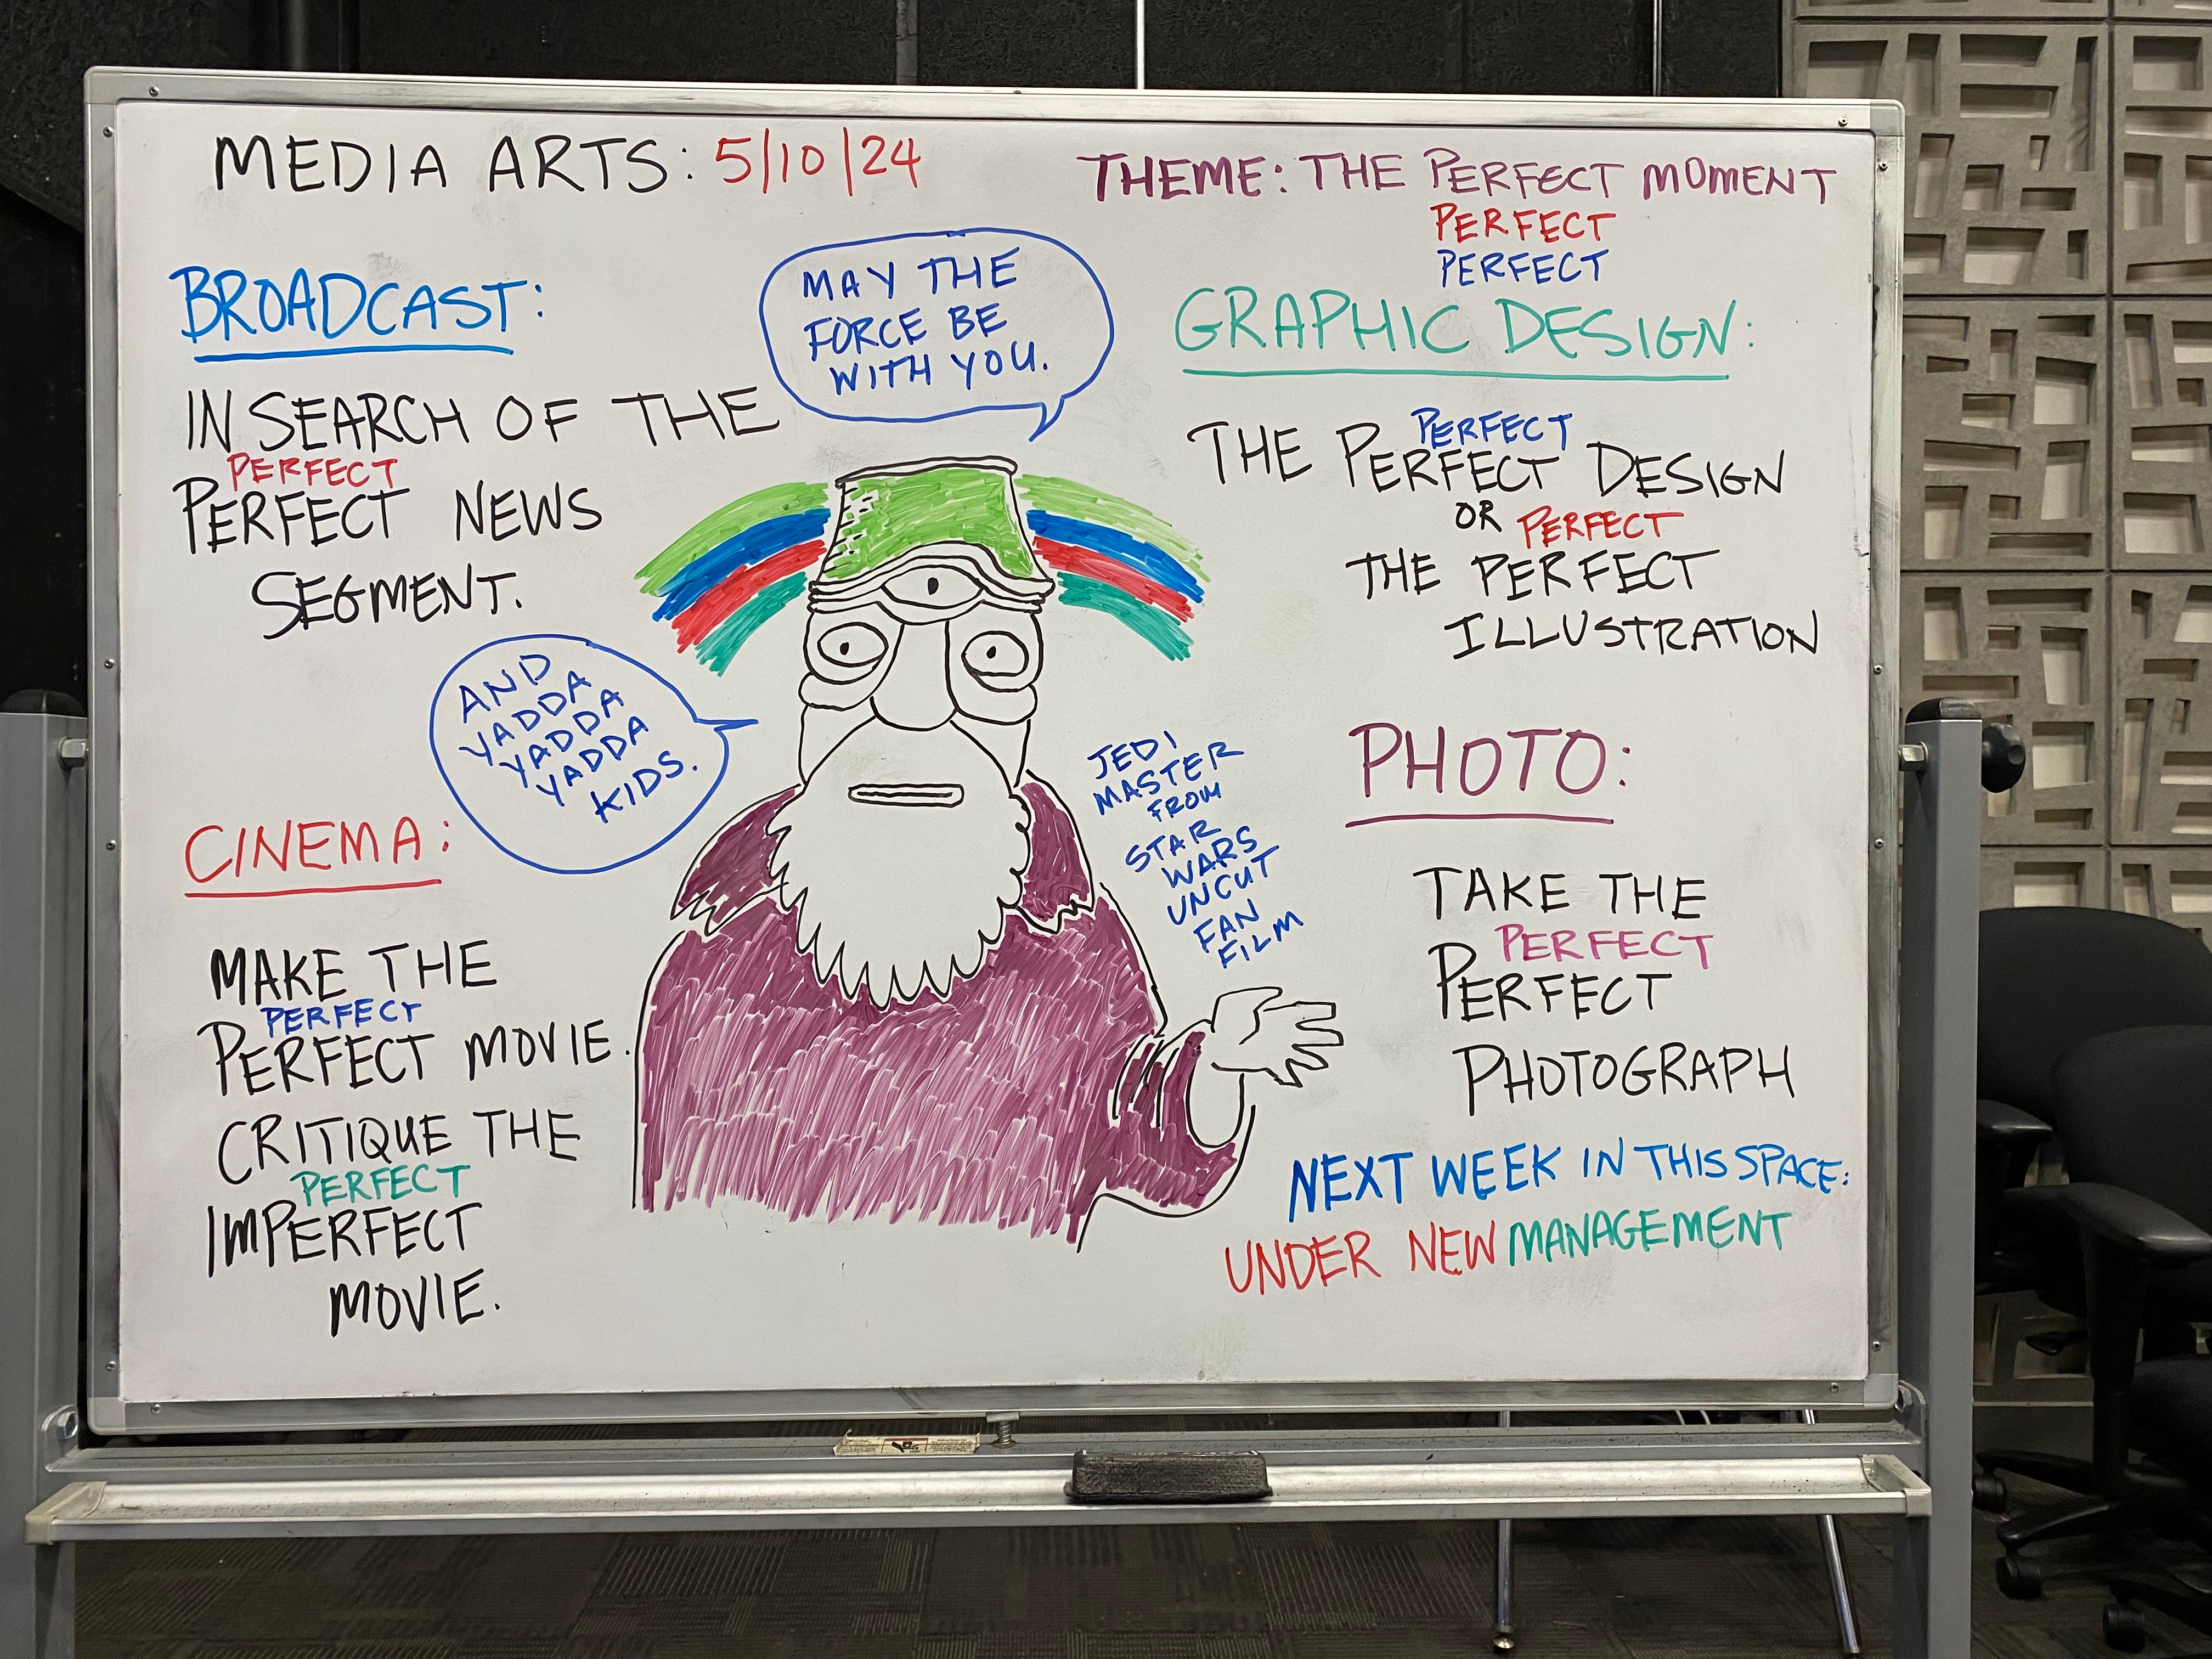 MEDIA ARTS: 5/10/24
THEME: THE PERFECT MOMENT
PERFECT
PERFECT
BROADCAST:
IN SEARCH OF THE
PERFECT
PERFECT NEWS
SEGMENT.
MAY THE
FORCE BE
WITH YOU.
GRAPHIC DESIGN:
PERFECT
THE PERFECT DESIGN
OR PERFECT
THE PERFECT
ILLUSTRATION
AND
YADDA
YADDA
YADDA
KIDS.
CINEMA:
MAKE THE
PERFECT
PERFECT MOVIE.
CRITIQUE THE
PERFECT
IMPERFECT
MOVIE.
JEDI
MASTER
FROM
STAR
WARS
UNCUT
FAN
FILM
PHOTO:
TAKE THE
PERFECT
PERFECT
PHOTOGRAPH
NEXT WEEK IN THIS SPACE:
UNDER NEW MANAGEMENT